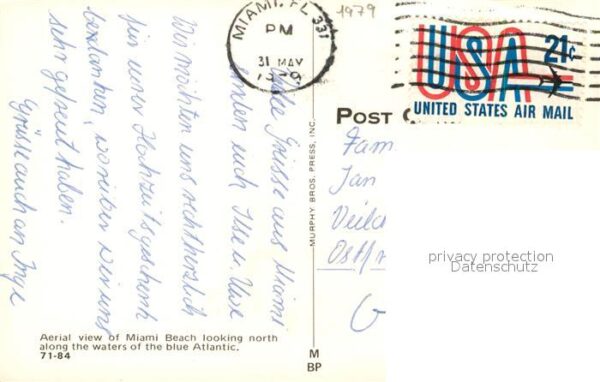 MIAMI, FL 331
PM
31 MAY
1979
1979
USA 21c
UNITED STATES AIR MAIL
POST C
Liebe Grüsse aus Miami
senden euch Ilse u. Uwe
Wir möchten uns recht herzlich
für euren Hochzeitsgeschenk
bedanken, worüber wir uns
sehr gefreut haben.
Grüsse auch an Inge
MURPHY BROS. PRESS, INC.
Fam
Jan
Veilc
Ostfr
G
privacy protection
Datenschutz
Aerial view of Miami Beach looking north
along the waters of the blue Atlantic.
71-84
M
BP